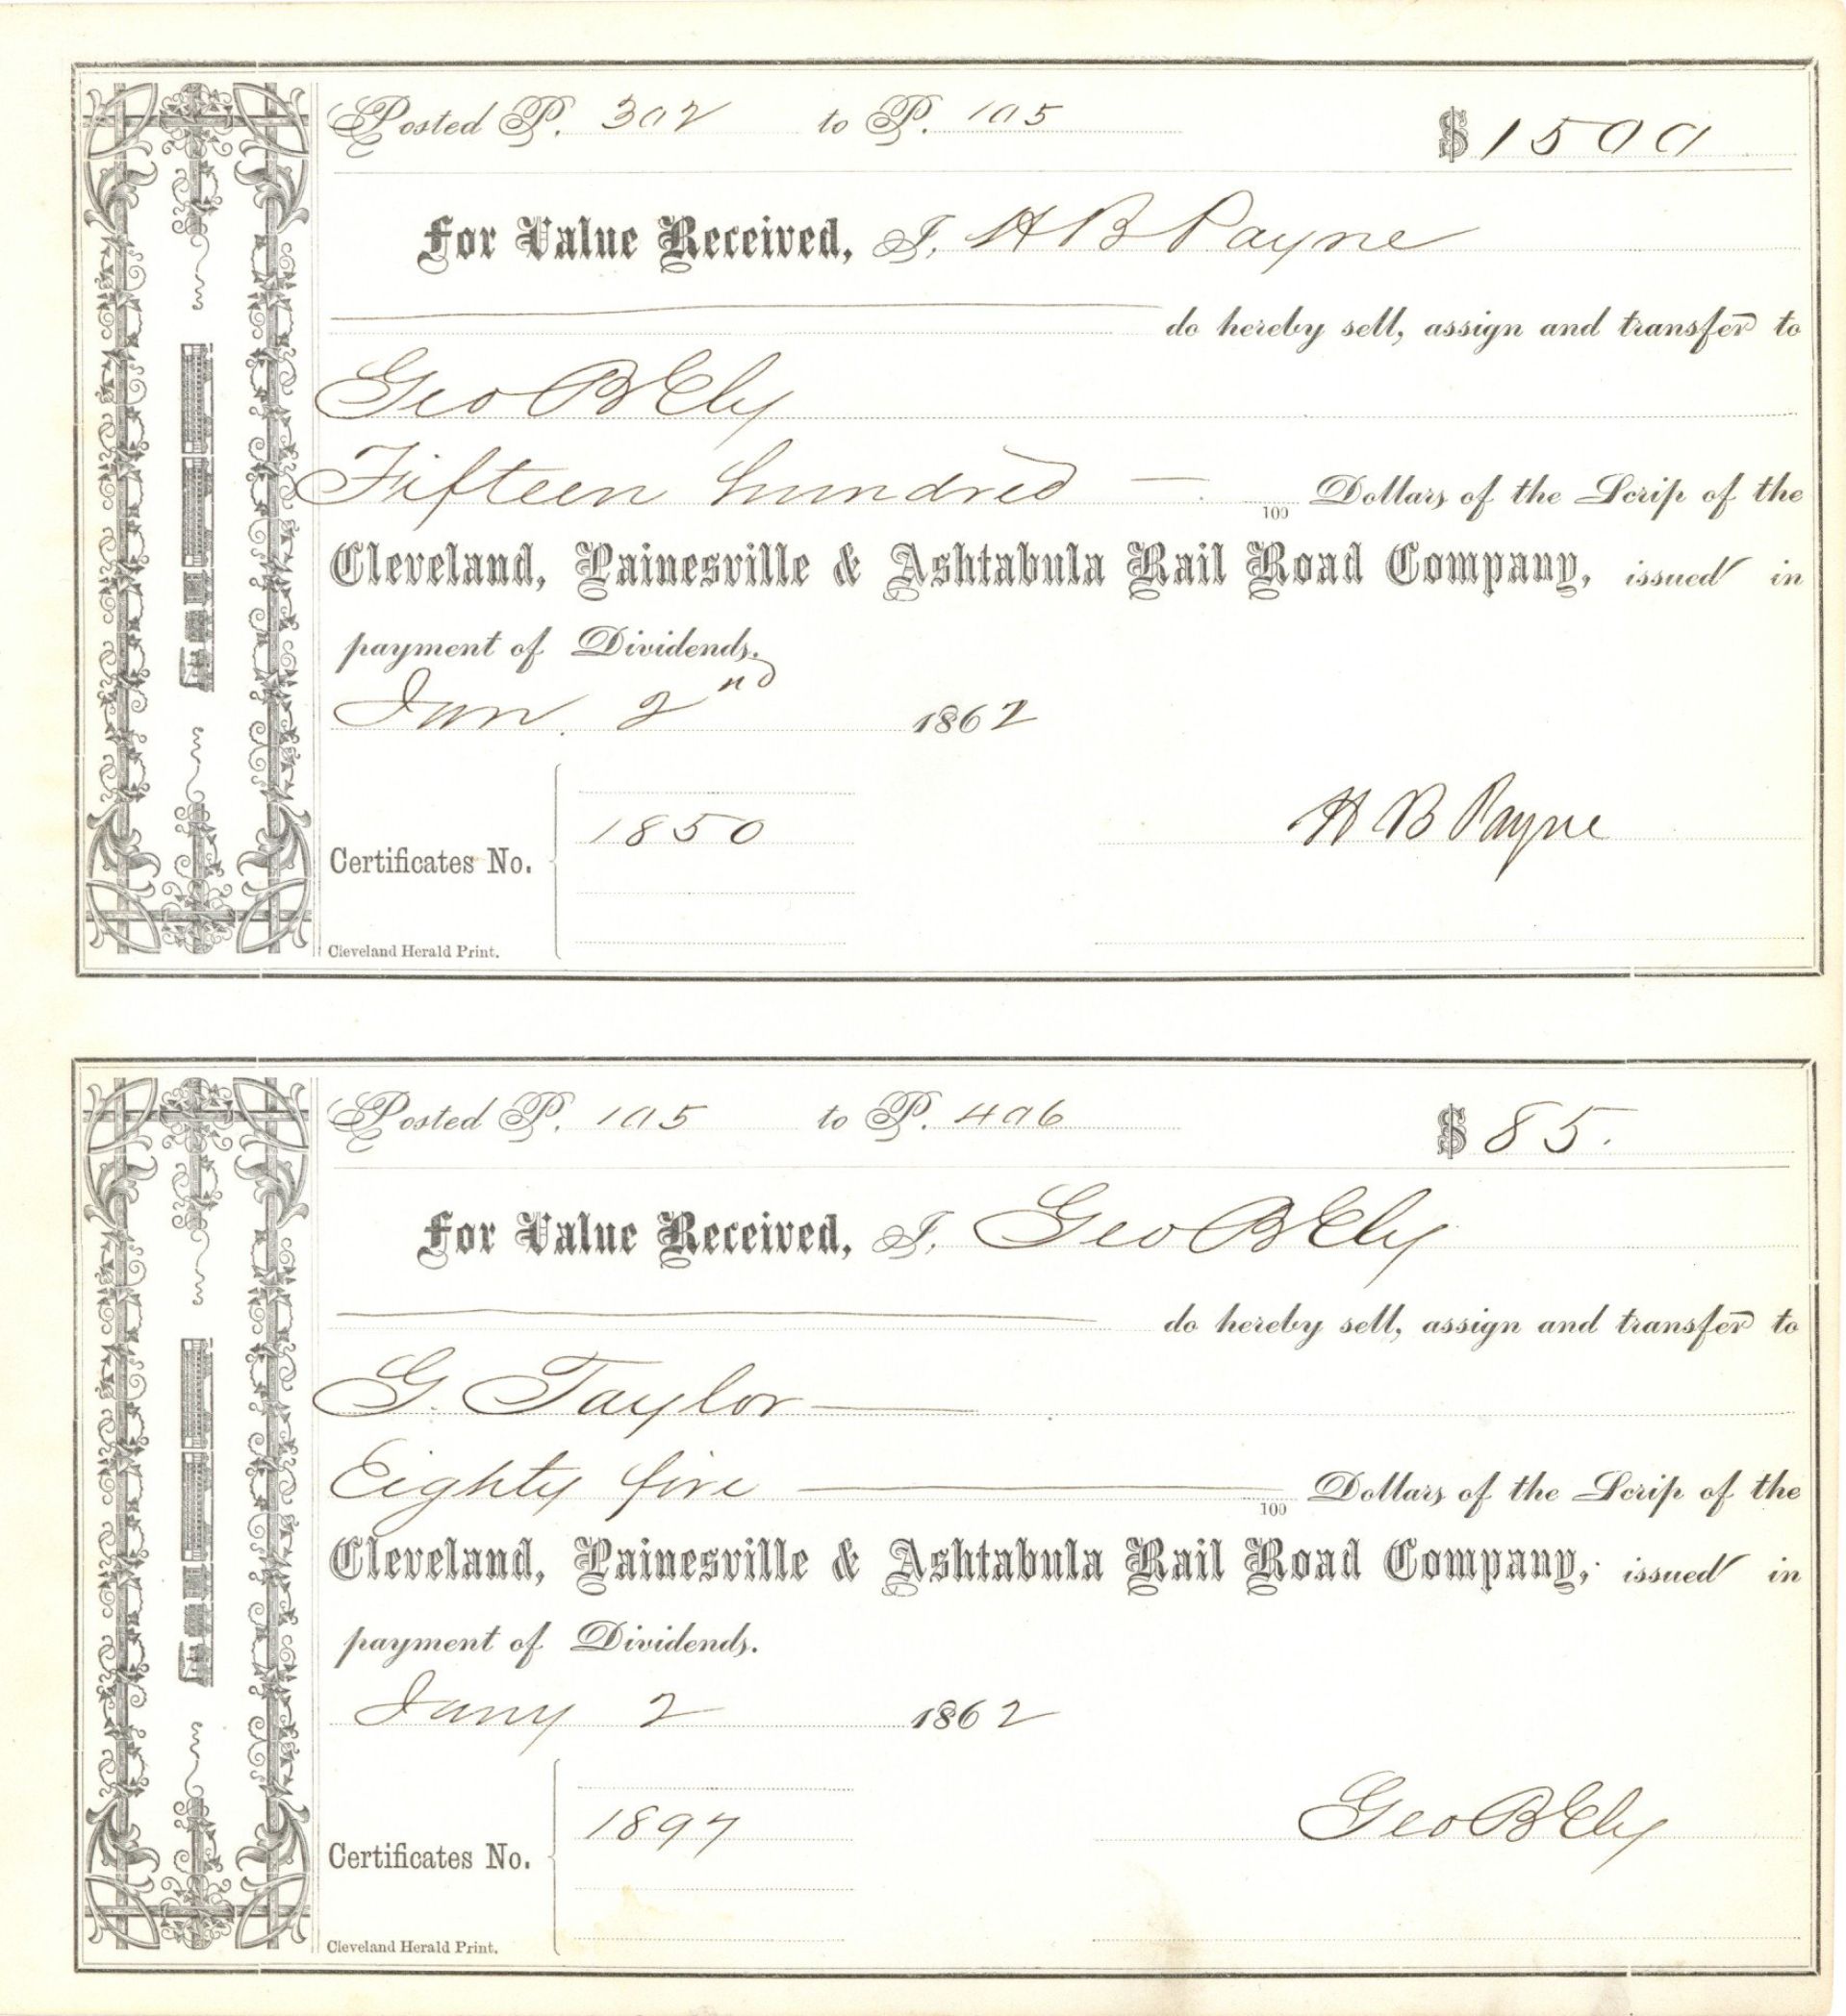 Posted P. 302 to P. 105 $1500
For Value Received, I, H B Payne
do hereby sell, assign and transfer to
Geo B Ely
Fifteen hundred — /100 Dollars of the Scrip of the
Cleveland, Painesville & Ashtabula Rail Road Company, issued in
payment of Dividends.
Jan. 2nd 1862
1850
H B Payne
Certificates No.
Cleveland Herald Print.
Posted P. 105 to P. 406 $85.
For Value Received, I, Geo B Ely
do hereby sell, assign and transfer to
G. Taylor
Eighty five — 100 Dollars of the Scrip of the
Cleveland, Painesville & Ashtabula Rail Road Company, issued in
payment of Dividends.
Jany 2 1862
1897
Geo B Ely
Certificates No.
Cleveland Herald Print.